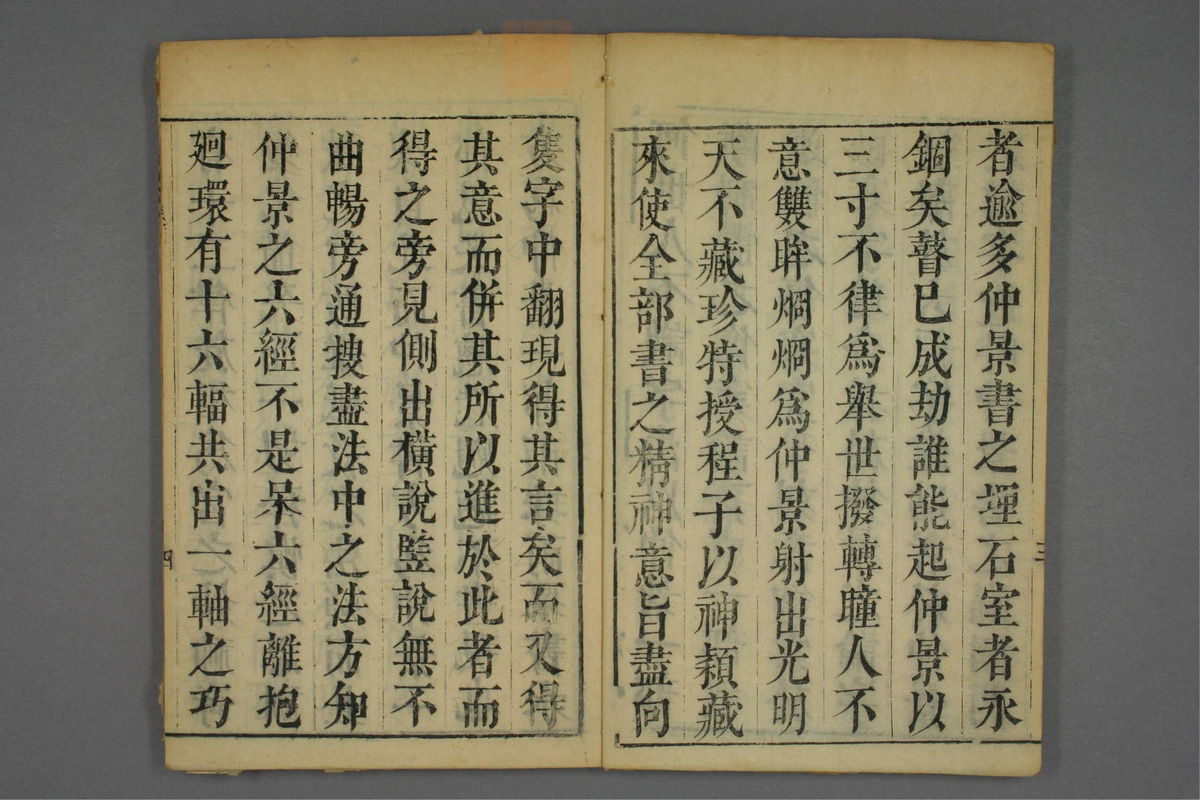 者逾多仲景書之堙石室者永
錮矣瞽已成劫誰能起仲景以
三寸不律爲舉世撥轉瞳人不
意雙眸烱烱爲仲景射出光明
天不藏珍特授程子以神頴藏
來使全部書之精神意旨盡向
三
隻字中翻現得其言矣而又得
其意而併其所以進於此者而
得之旁見側出橫說竪說無不
曲暢旁通搜盡法中之法方知
仲景之六經不是呆六經離抱
廻環有十六輻共出一軸之巧
四